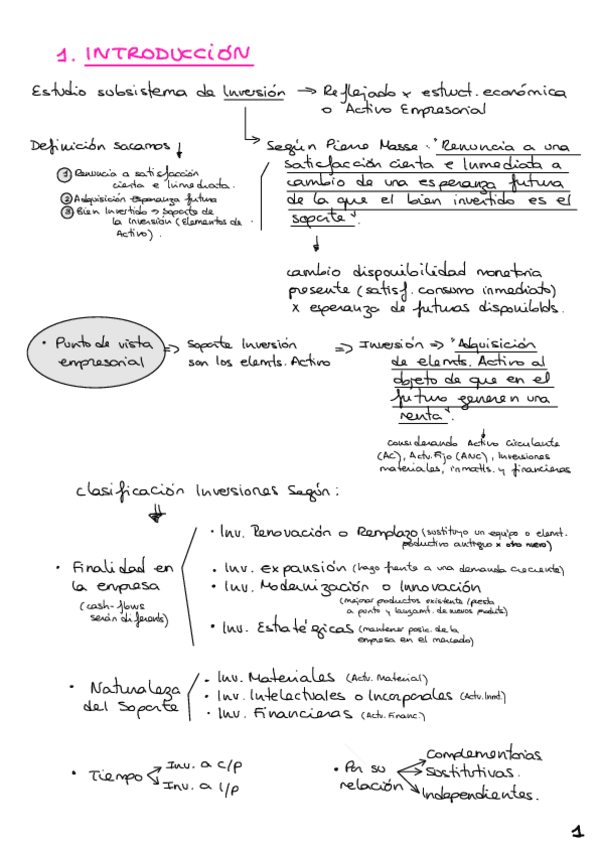 1. INTRODUCCIÓN
Estudio subsistema de Inversión → Reflejado x estruct. económica
o Activo Empresarial
Definición sacamos ↓
① Renuncia a satisfacción
cierta e Inmediata.
② Adquisición Esperanza futura
③ Bien Invertido → Soporte de
la inversión (Elementos de
Activo).
Según Pierre Masse: "Renuncia a una
satisfacción cierta e Inmediata a
cambio de una esperanza futura
de la que el bien invertido es el
soporte".
↓
cambio disponibilidad monetaria
presente (satisf. consumo inmediato)
x esperanza de futuras disponiblds.
• Punto de vista
empresarial
=> Soporte Inversión
son los elemts. Activo
=> Inversión => "Adquisición
de elemts. Activo al
objeto de que en el
futuro generen una
renta".
↓
considerando Activo Circulante
(AC), Actv. Fijo (ANC), Inversiones
materiales, inmatls. y financieras
Clasificación Inversiones Según:
• Finalidad en
la empresa
(cash-flows
serán diferents)
• Inv. Renovación o Remplazo (sustituyo un equipo o elemt.
productivo antiguo x otro nuevo)
• Inv. expansión (hago frente a una demanda creciente)
• Inv. Modernización o Innovación
(mejorar productos existente / puesta
a punto y lanzamt. de nuevos products)
• Inv. Estratégicas (mantener posic. de la
empresa en el mercado)
• Naturaleza
del Soporte
• Inv. Materiales (Actv. Material)
• Inv. Intelectuales o Incorporales (Actv. Inmt.)
• Inv. Financieras (Actv. Financ.)
• Tiempo
Inv. a c/p
Inv. a l/p
• Por su
relación
Complementarias
Sostitutivas.
Independientes.
1